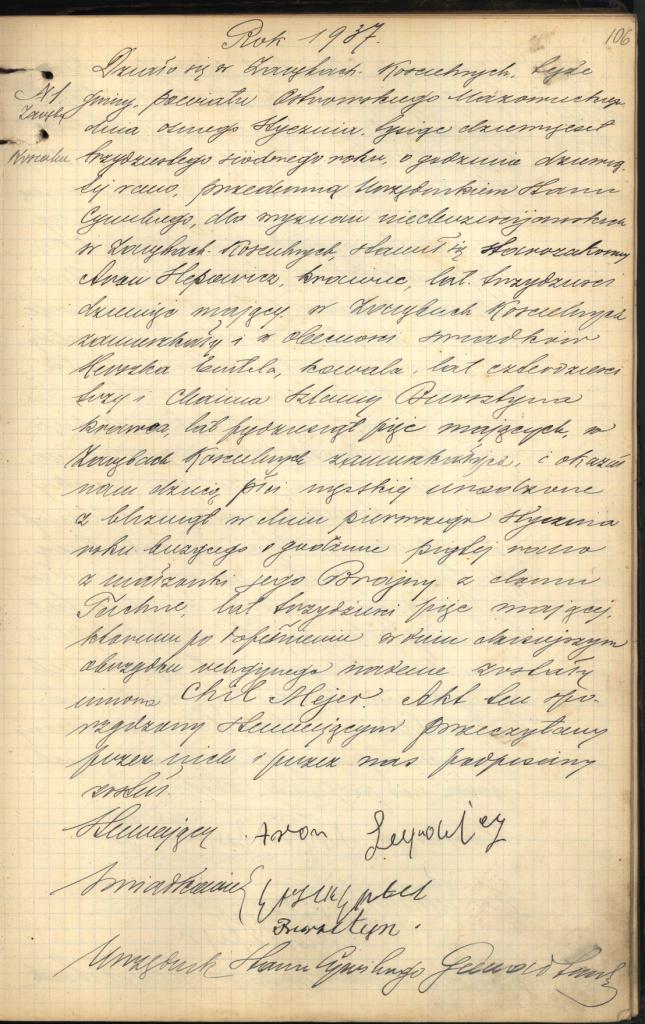 106
Rok 1937.
№ 1
Zaręby
Kościelne
Działo się w Zarębach-Kościelnych, tejże
gminy, powiatu Ostrowskiego Mazowieckiego
dnia ósmego stycznia, tysiąc dziewięćset
trzydziestego siódmego roku, o godzinie dziewią-
tej rano, przedemną Urzędnikiem Stanu
Cywilnego, dla wyznań niechrześcijańskich
w Zarębach-Kościelnych, stawił się starozakonny
Aron krawiec, lat trzydzieści
dziewięć mający, w Zarębach Kościelnych
zamieszkały i w obecności świadków
Herszka kowala, lat czterdzieści
trzy i Chaima Szlamy Bursztyna
krawca, lat pięćdziesiąt pięć mających, w
Zarębach Kościelnych zamieszkałych, i okazał
nam dziecię płci męskiej urodzone
z bliźniąt w dniu pierwszego stycznia
roku bieżącego o godzinie piątej rano
z małżonki jego Brajny z domu
lat trzydzieści pięć mającej,
któremu po w dniu dzisiejszym
obrządku religijnego nadane zostały
imiona Chil Mejer. Akt ten spo-
rządzony stawającym przeczytany
przez nich i przez nas podpisany
został.
Stawający Aron
Świadkowie
Bursztyn.
Urzędnik Stanu Cywilnego